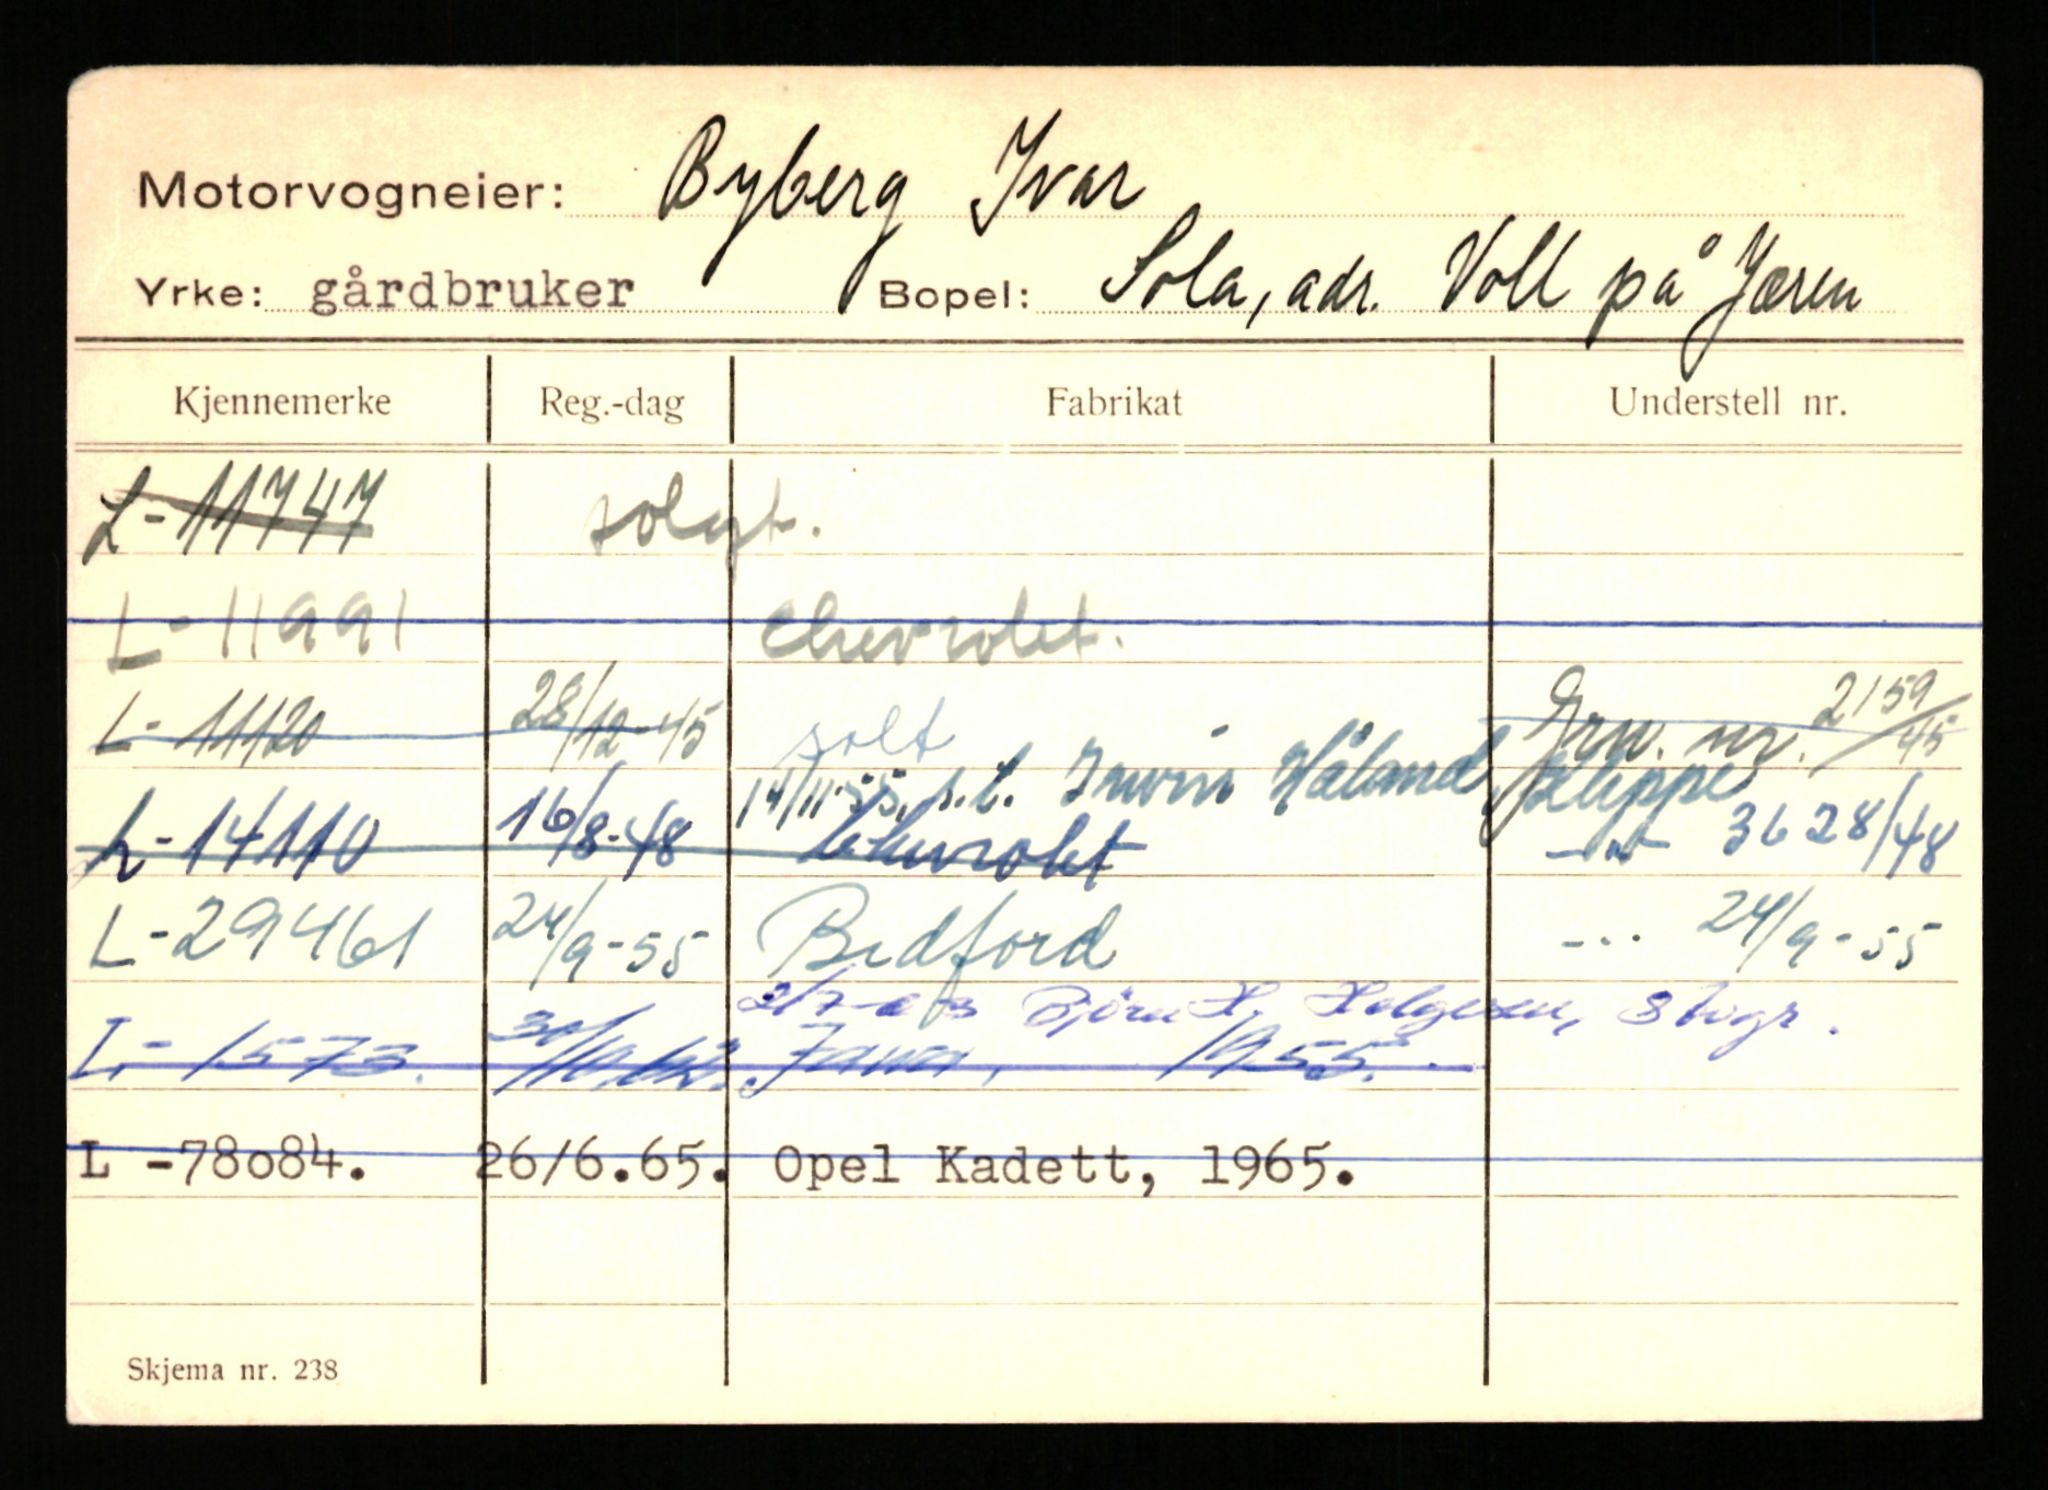 Motorvogneier: Byberg Ivar
Yrke: gårdbruker Bopel: Sola, adr. Voll på Jæren
Kjennemerke Reg.-dag Fabrikat Understell nr.
L-11747 solgt.
L-11991 Chevrolet.
L-11120 28/12-45 solt Grw. nr. 2159/45
14/11-55, s.t. Håland, Kleppe
L-14110 16/8-48 Chevrolet -"- 3628/48
L-29461 24/9-55 Bedford -"- 24/9-55
2/7-63 Bjørn H. Helgesen, Stvgr.
L-1573. 30/10.62. Jawa, 1955.
L -78084. 26/6.65. Opel Kadett, 1965.
Skjema nr. 238